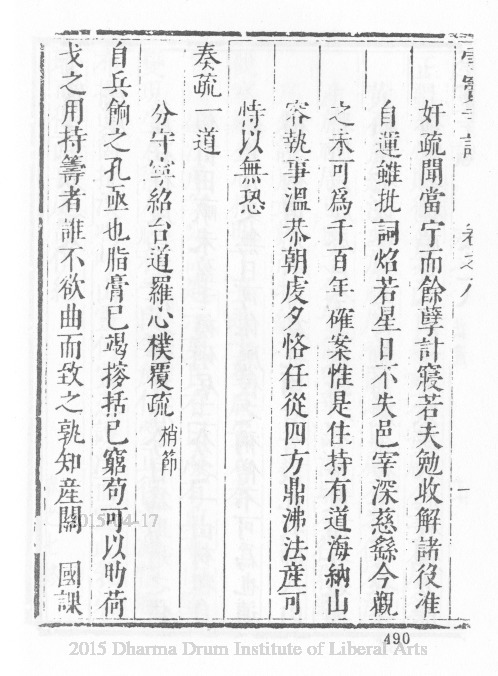 雪竇寺誌 卷之八 一
奸疏聞當宁而餘孽計寢若夫勉收解諸役准
自運雖批詞炤若星日不失邑宰深慈繇今觀
之未可爲千百年確案惟是住持有道海納山
容執事溫恭朝虔夕恪任從四方鼎沸法産可
恃以無恐
奏疏一道
分守寧紹台道羅心樸覆疏 梢節
自兵餉之孔亟也脂膏已竭搜括已窮苟可以助荷
戈之用持籌者誰不欲曲而致之孰知産關 國課
2015-04-17
490
2015 Dharma Drum Institute of Liberal Arts